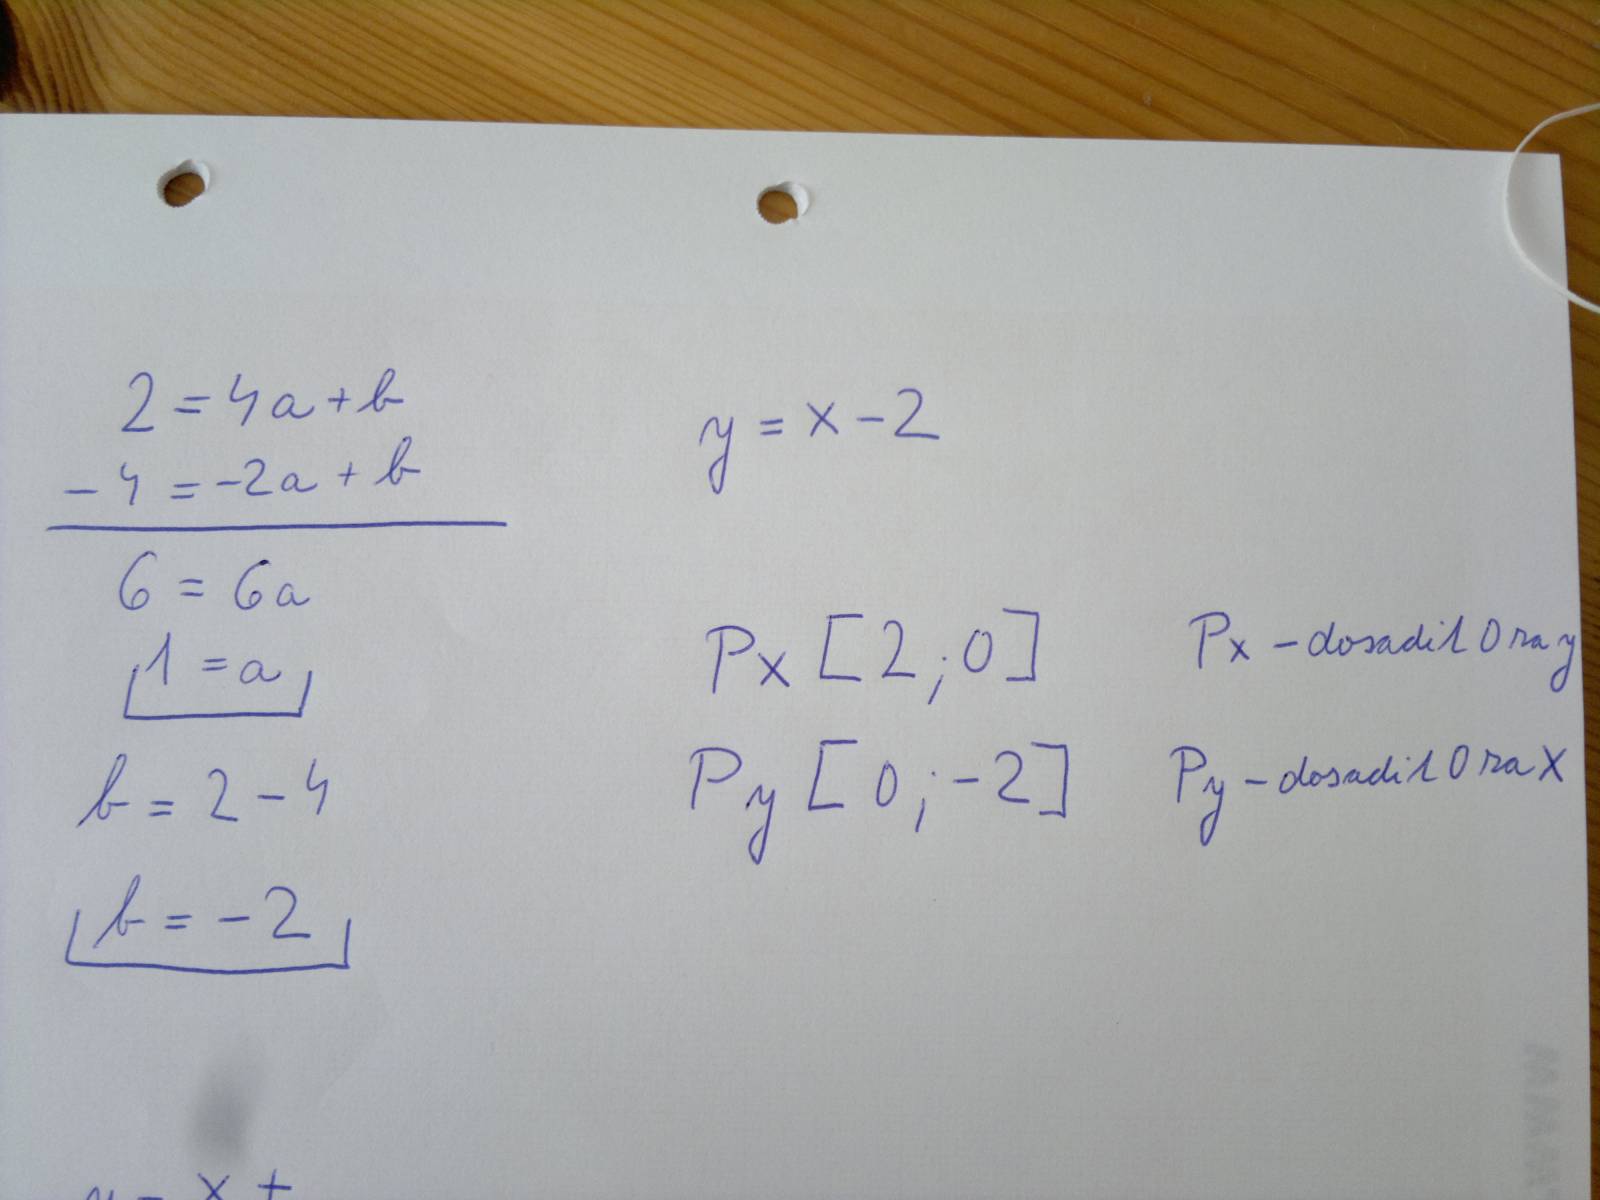 2 = 4a + b
- 4 = -2a + b
6 = 6a
1 = a
b = 2 - 4
b = -2
y = x - 2
Px [2;0]
Px - dosadit 0 za y
Py [0;-2]
Py - dosadit 0 za x